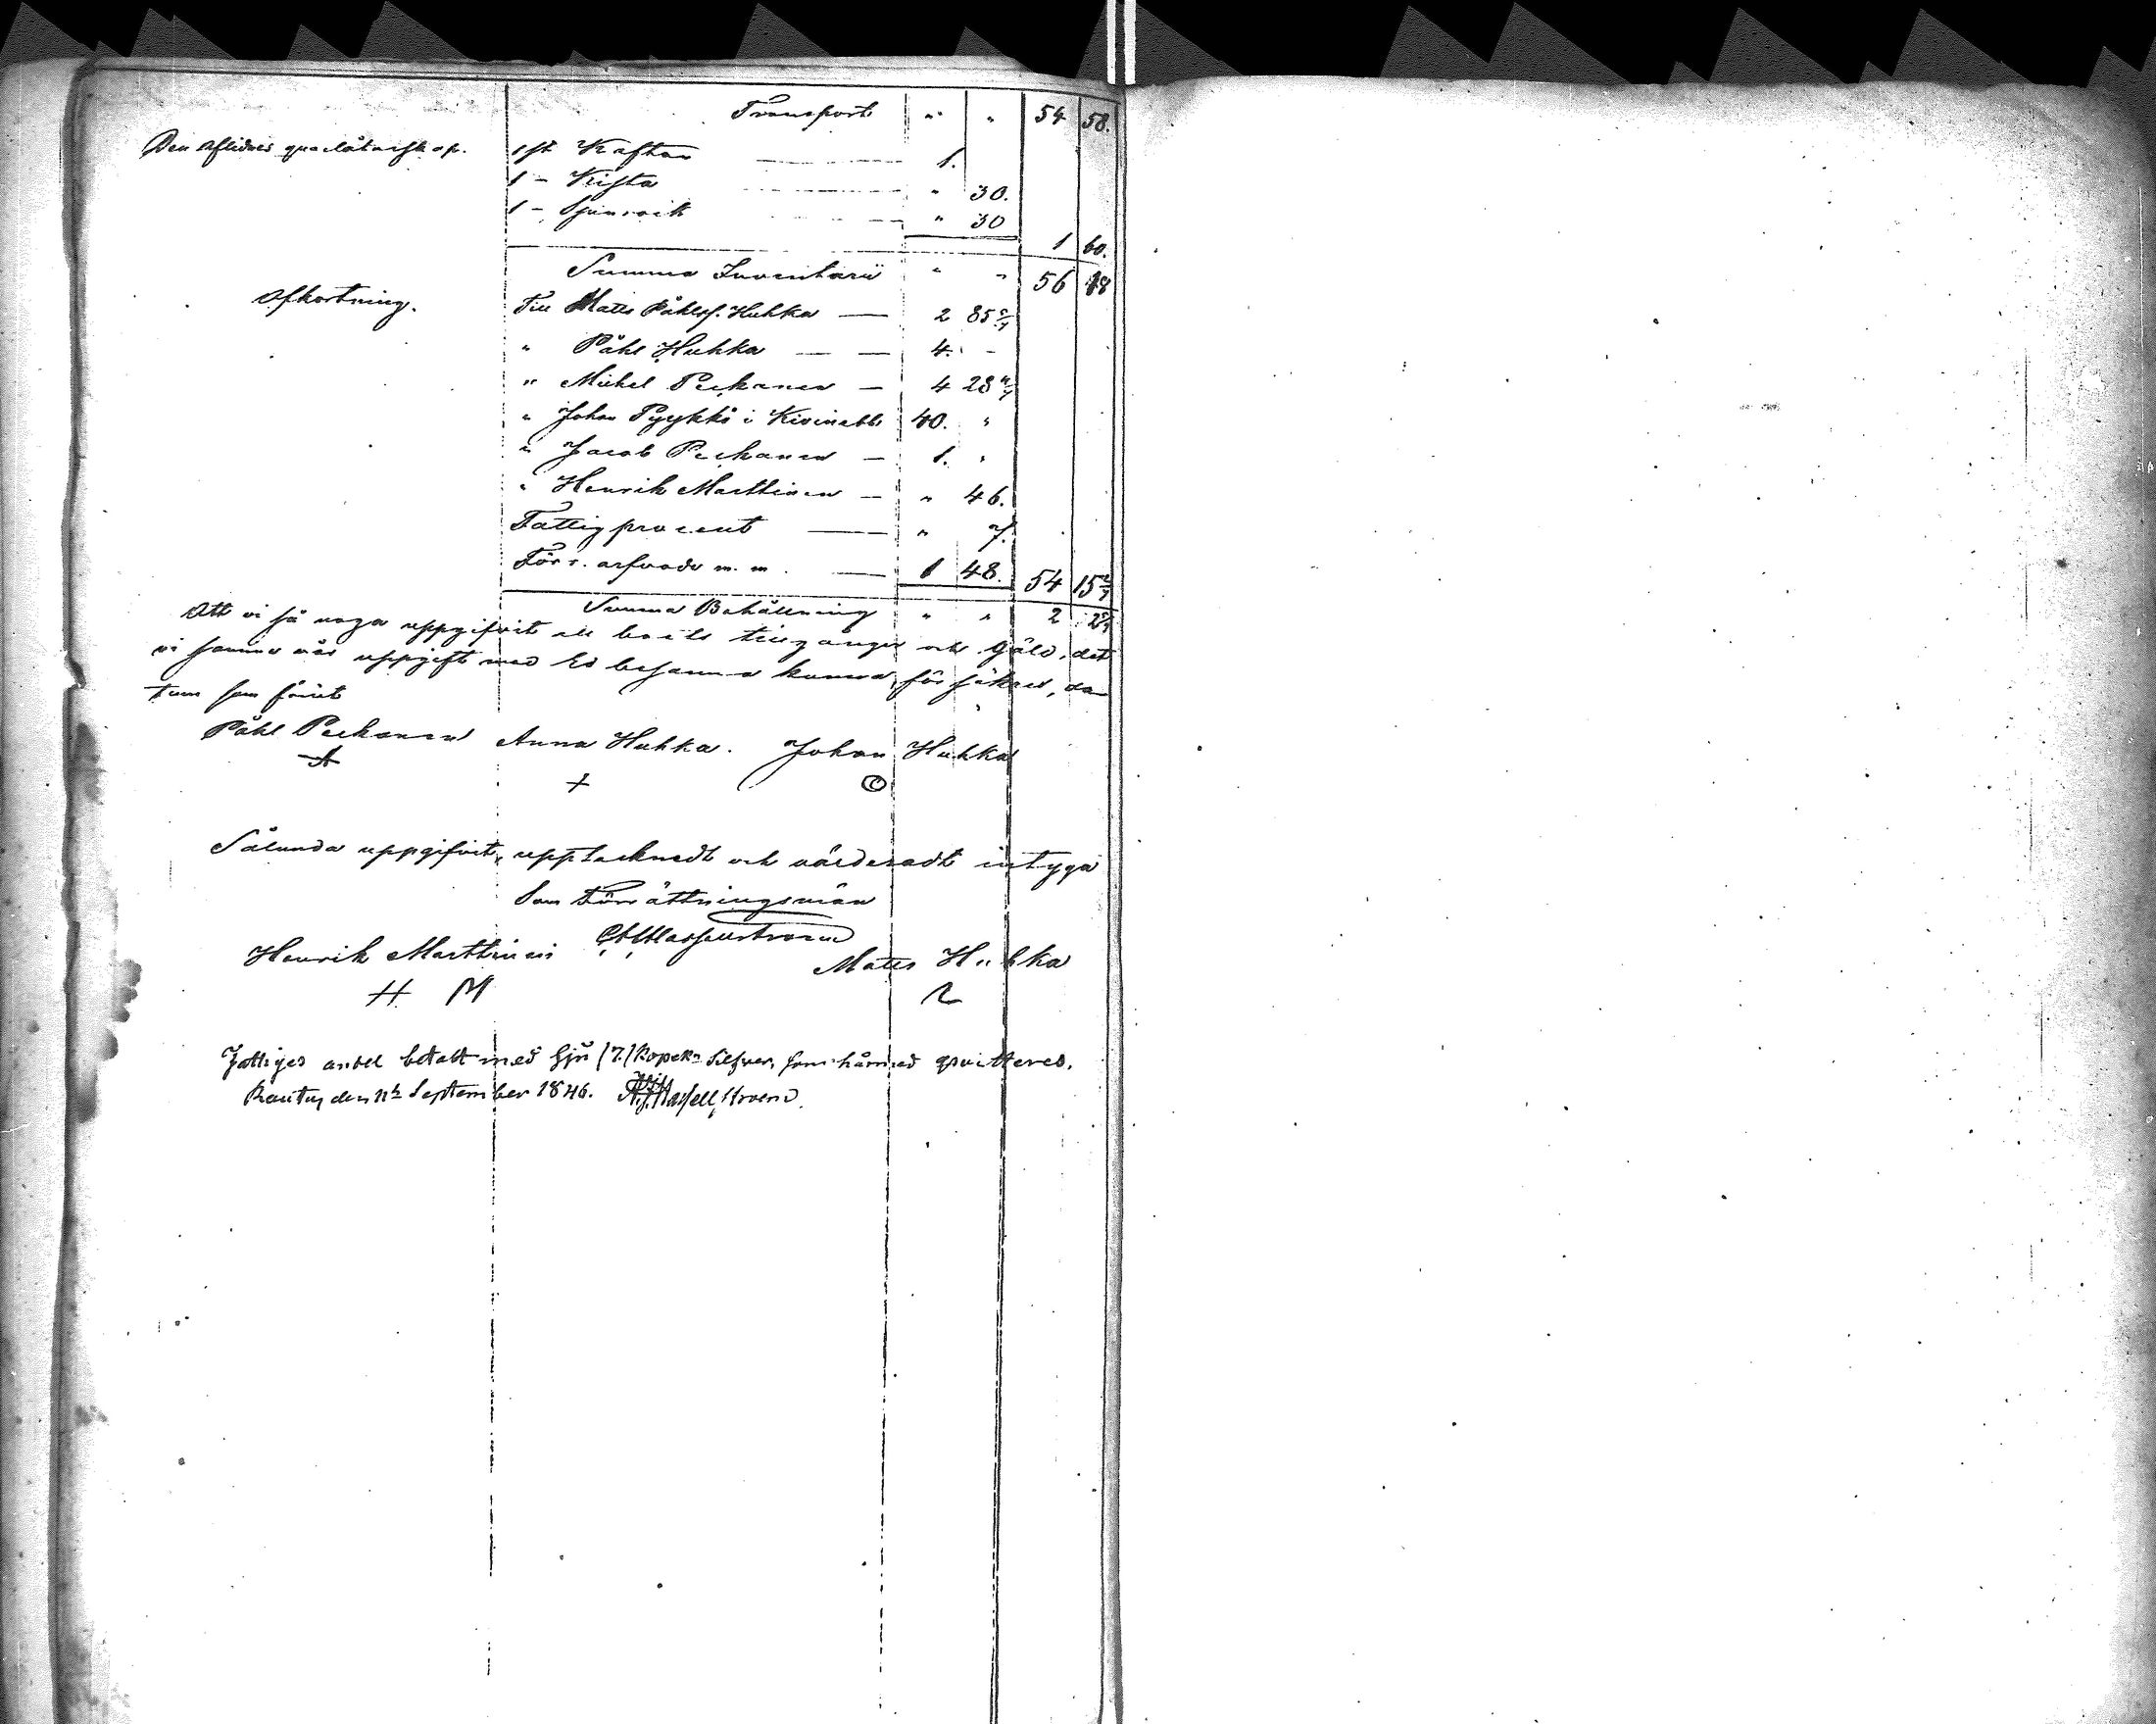 Transport " " 54 58.
Den Aflidnes qvarlåtenskap. 1 st Kaftan 1.
1 - Kista " 30.
1 - Spinrock " 30
1 60.
Summa Inventarii " " 56 18
Afkortning. Till Matts Påhlss. Huhka 2 85 5/7
" Påhl Huhka 4. -
" Michel Peckanen 4 28 4/7
" Johan Pyykkö i Kivinebb 40. "
" Jacob Peckanen 1. "
" Henrik Marttinen " 46.
Fattig procent " 7.
Förr. arfvode m. m. 1 48. 54 15 2/7
Summa Behållning " " 2 2 5/7
Att vi så noga uppgifvit all boets tillgångar och gäld, det
vi samma vår uppgift med Ed besanna kunna, försäkras, da
tum som förut
Påhl Peckanen Anna Huhka. Johan Huhka
Sålunda uppgifvit, upptecknadt och värderadt intyga
Som Förrättningsmän
Henrik Marttinen Matts Huhka
H M
Fattiges andel betalt med sju (7.) kopek Silfver, som härmed qvitteres.
Rautus den 11te September 1846.